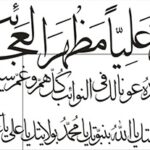 عليّاً مظهر العجائب
ده عونا لك في النوائب كل هم وغم
يا الله بنبوتك يا محمد بولايتك يا علي يا